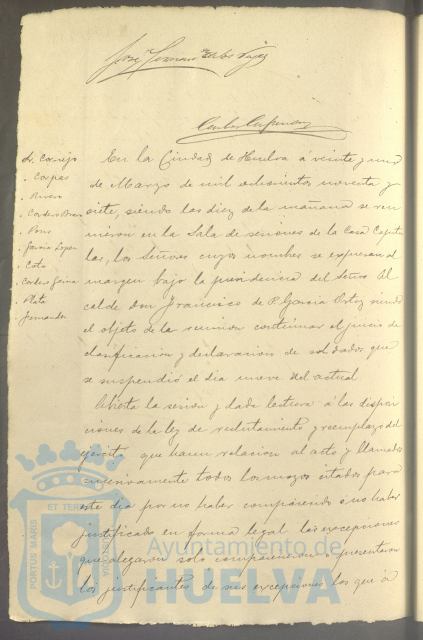 Sr. Cornejo
" Corpas
" Rivero
" Cordero Bravo
" Pons
" Garcia Lopez
" Coto
" Cordero Garcia
" Plata
" Fernandez
En la Ciudad de Huelva á veinte y uno
de Marzo de mil ochocientos noventa y
siete, siendo las diez de la mañana se reu
nieron en la Sala de sesiones de la Casa Capitu
lar, los Señores cuyos nombres se expresan al
margen bajo la presidencia del Señor Al
calde don Francisco de P. Garcia Ortiz siendo
el objeto de la reunion continuar el juicio de
clasificacion y declaracion de soldados que
se suspendió el dia nueve del actual
Abierta la sesion y dada lectura á las disposi
ciones de la ley de reclutamiento y reemplazo del
ejército que hacen relacion al acto y llamados
sucesivamente todos los mozos citados para
este dia por no haber comparecido ó no haber
justificado en forma legal las excepciones
que alegaron solo comparecieron y presentaron
los justificantes de sus excepciones los que á
PORTUS MARIS
ET TERRAE
Ayuntamiento de
HUELVA